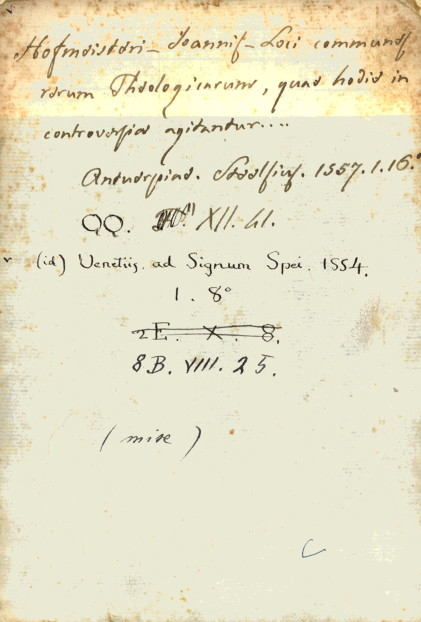 Hofmeisteri - Joannis - Loci communes
rerum Theologicarum, quae hodie in
controversia agitantur....
Antuerpiae. Steelsius. 1557. 1. 16.°
QQ. XII. 41.
(id) Venetiis. ad Signum Spei. 1554.
1. 8°
2E. X. 8.
8B. VIII. 25.
(mise)
C